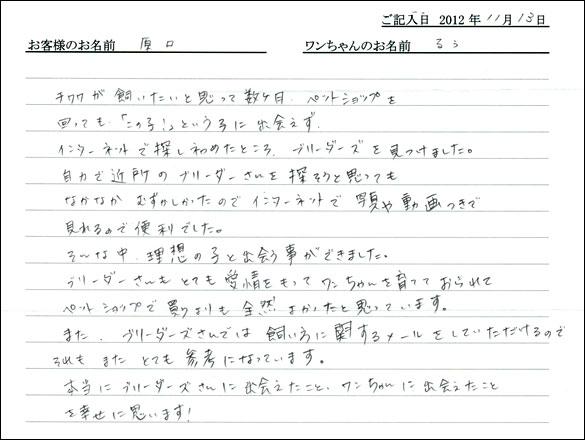 ご記入日 2012年11月13日
お客様のお名前 原口 ワンちゃんのお名前 るぅ
チワワが飼いたいと思って数ヶ月、ペットショップを
回っても、「この子!」という子に出会えず、
インターネットで探し初めたところ、ブリーダーズを見つけました。
自力で近所のブリーダーさんを探そうと思っても
なかなかむずかしかったのでインターネットで写真や動画つきで
見れるので便利でした。
そんな中、理想の子と出会う事ができました。
ブリーダーさんもとても愛情をもってワンちゃんを育てておられて
ペットショップで買うよりも全然よかったと思っています。
また、ブリーダーズさんでは飼い方に関するメールをしていただけるので
それもまたとても参考になっています。
本当にブリーダーズさんに出会えたこと、ワンちゃんに出会えたこと
を幸せに思います!